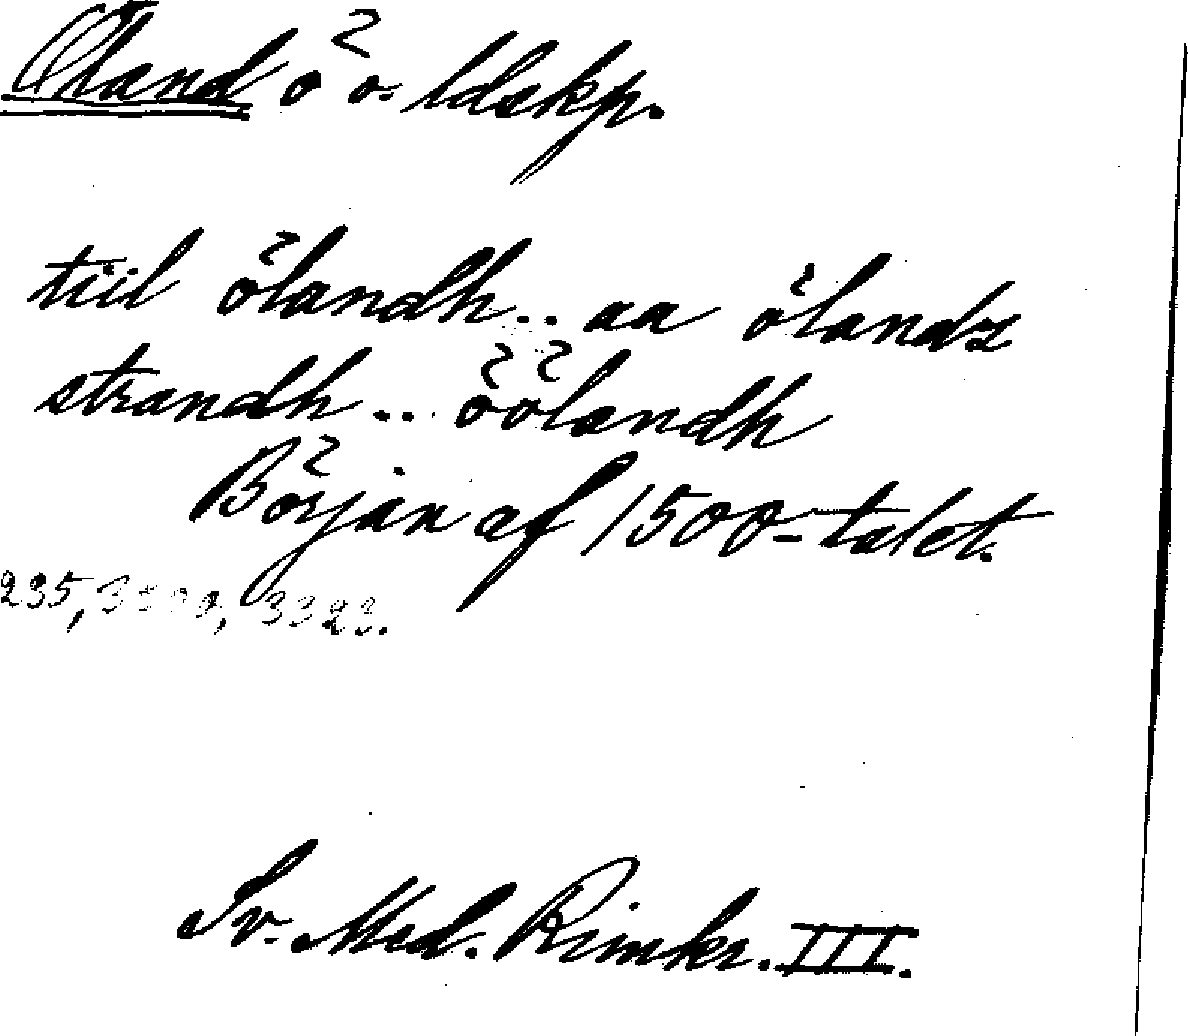 Öland ö o. ldskp.
tiil ölandh.. aa ölandz
strandh.. öölandh
Början af 1500-talet.
235, 3323.
Sv. Med. Rimkr. III.